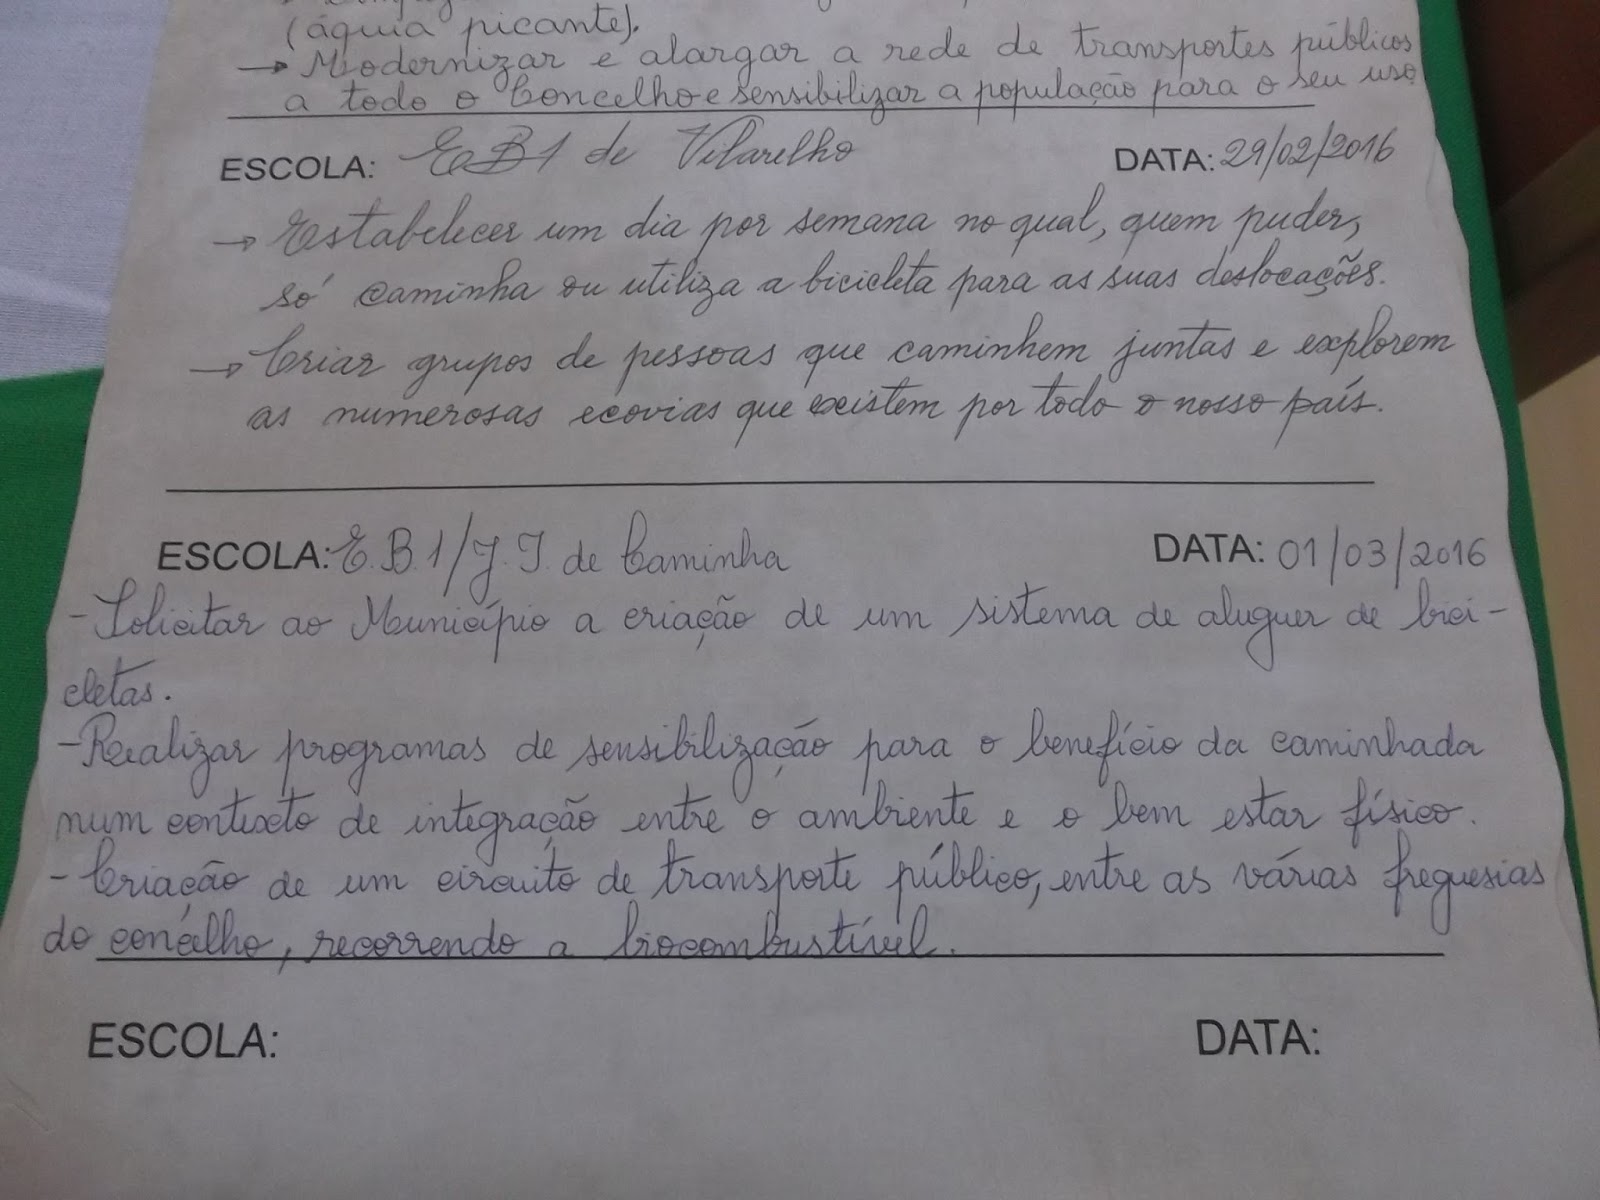 (águia picante).
→ Modernizar e alargar a rede de transportes públicos
a todo o Concelho e sensibilizar a população para o seu uso
ESCOLA: EB1 de Vilarelho DATA: 29/02/2016
→ Estabelecer um dia por semana no qual, quem puder,
só caminha ou utiliza a bicicleta para as suas deslocações.
→ Criar grupos de pessoas que caminhem juntas e explorem
as numerosas ecovias que existem por todo o nosso país.
ESCOLA: E.B.1/J.I. de Caminha DATA: 01/03/2016
- Solicitar ao Município a criação de um sistema de aluguer de bici-
cletas.
- Realizar programas de sensibilização para o benefício da caminhada
num contexto de integração entre o ambiente e o bem estar físico.
- Criação de um circuito de transporte público, entre as várias freguesias
do concelho, recorrendo a biocombustível.
ESCOLA: DATA: